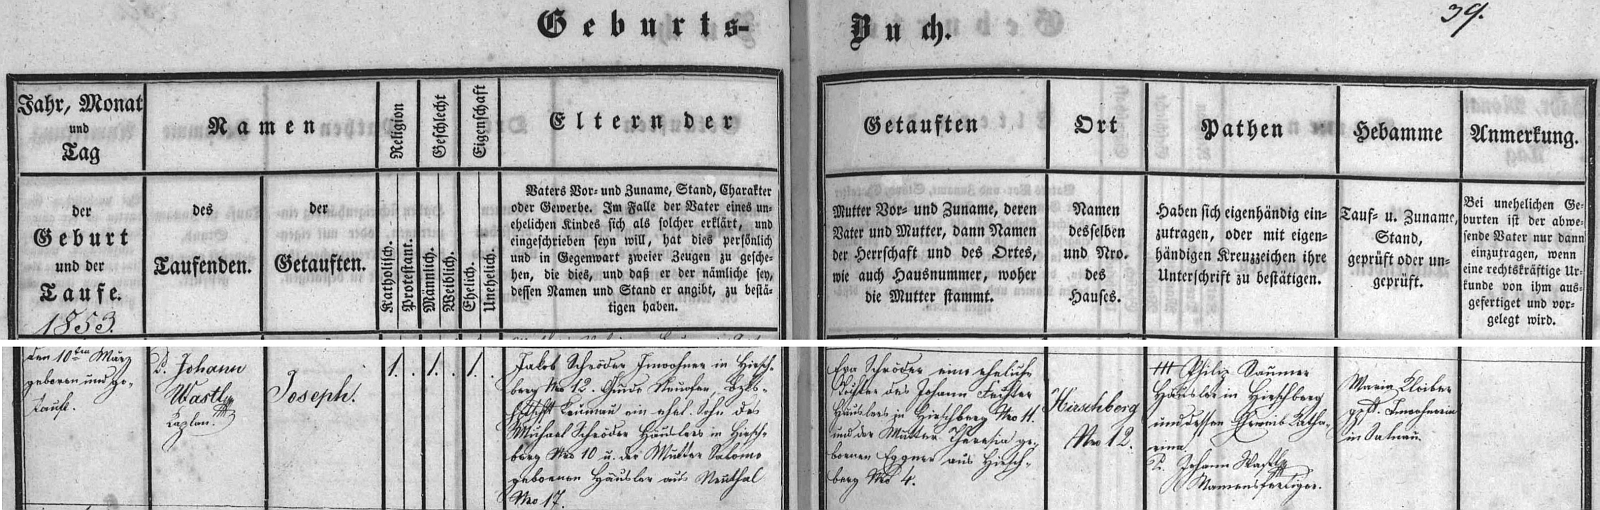 Geburts-
Buch.
39.
Jahr, Monat
und
Tag
Namen
Religion
Geschlecht
Eigenschaft
Eltern der
Getauften
Ort
Pathen
Hebamme
Anmerkung.
der
Geburt
und der
Taufe.
1853.
des
Taufenden.
der
Getauften.
Katholisch.
Protestant.
Männlich.
Weiblich.
Ehelich.
Unehelich.
Vaters Vor- und Zuname, Stand, Charakter
oder Gewerbe. Im Falle der Vater eines un-
ehelichen Kindes sich als solcher erklärt, und
eingeschrieben seyn will, hat dies persönlich
und in Gegenwart zweier Zeugen zu gesche-
hen, die dies, und daß er der nämliche sey,
dessen Namen und Stand er angibt, zu bestä-
tigen haben.
Mutter Vor- und Zuname, deren
Vater und Mutter, dann Namen
der Herrschaft und des Ortes,
wie auch Hausnummer, woher
die Mutter stammt.
Namen
desselben
und Nro.
des
Hauses.
Haben sich eigenhändig ein-
zutragen, oder mit eigen-
händigen Kreuzzeichen ihre
Unterschrift zu bestätigen.
Tauf- u. Zuname,
Stand,
geprüft oder un-
geprüft.
Bei unehelichen Ge-
burten ist der abwe-
sende Vater nur dann
einzutragen, wenn
eine rechtskräftige Ur-
kunde von ihm aus-
gefertiget und vor-
gelegt wird.
den 10ten März
geboren und ge-
tauft.
P. Johann
Wastl
Kaplan.
Joseph.
1. 1. 1.
Jakob Schröder Inwohner in Hirsch-
berg No 12.
ein ehel. Sohn des
Michael Schröder Häuslers in Hirsch-
berg No 10 u. der Mutter Salome
geborenen Häusler aus Neuthal
No 17.
Eva Schröder eine eheliche
Tochter des Johann
Häuslers in Hirschberg No 11.
und der Mutter Theresia ge-
bornen Eggner aus Hirsch-
berg No 4.
Hirschberg
No 12.
+++ Philip Saumer
Häusler in Hirschberg
und dessen Eheweib Katha-
rina.
P. Johann Wastl
Namensfertiger.
Maria Kloiber
gepft. Inwohnerin
in Salnau.